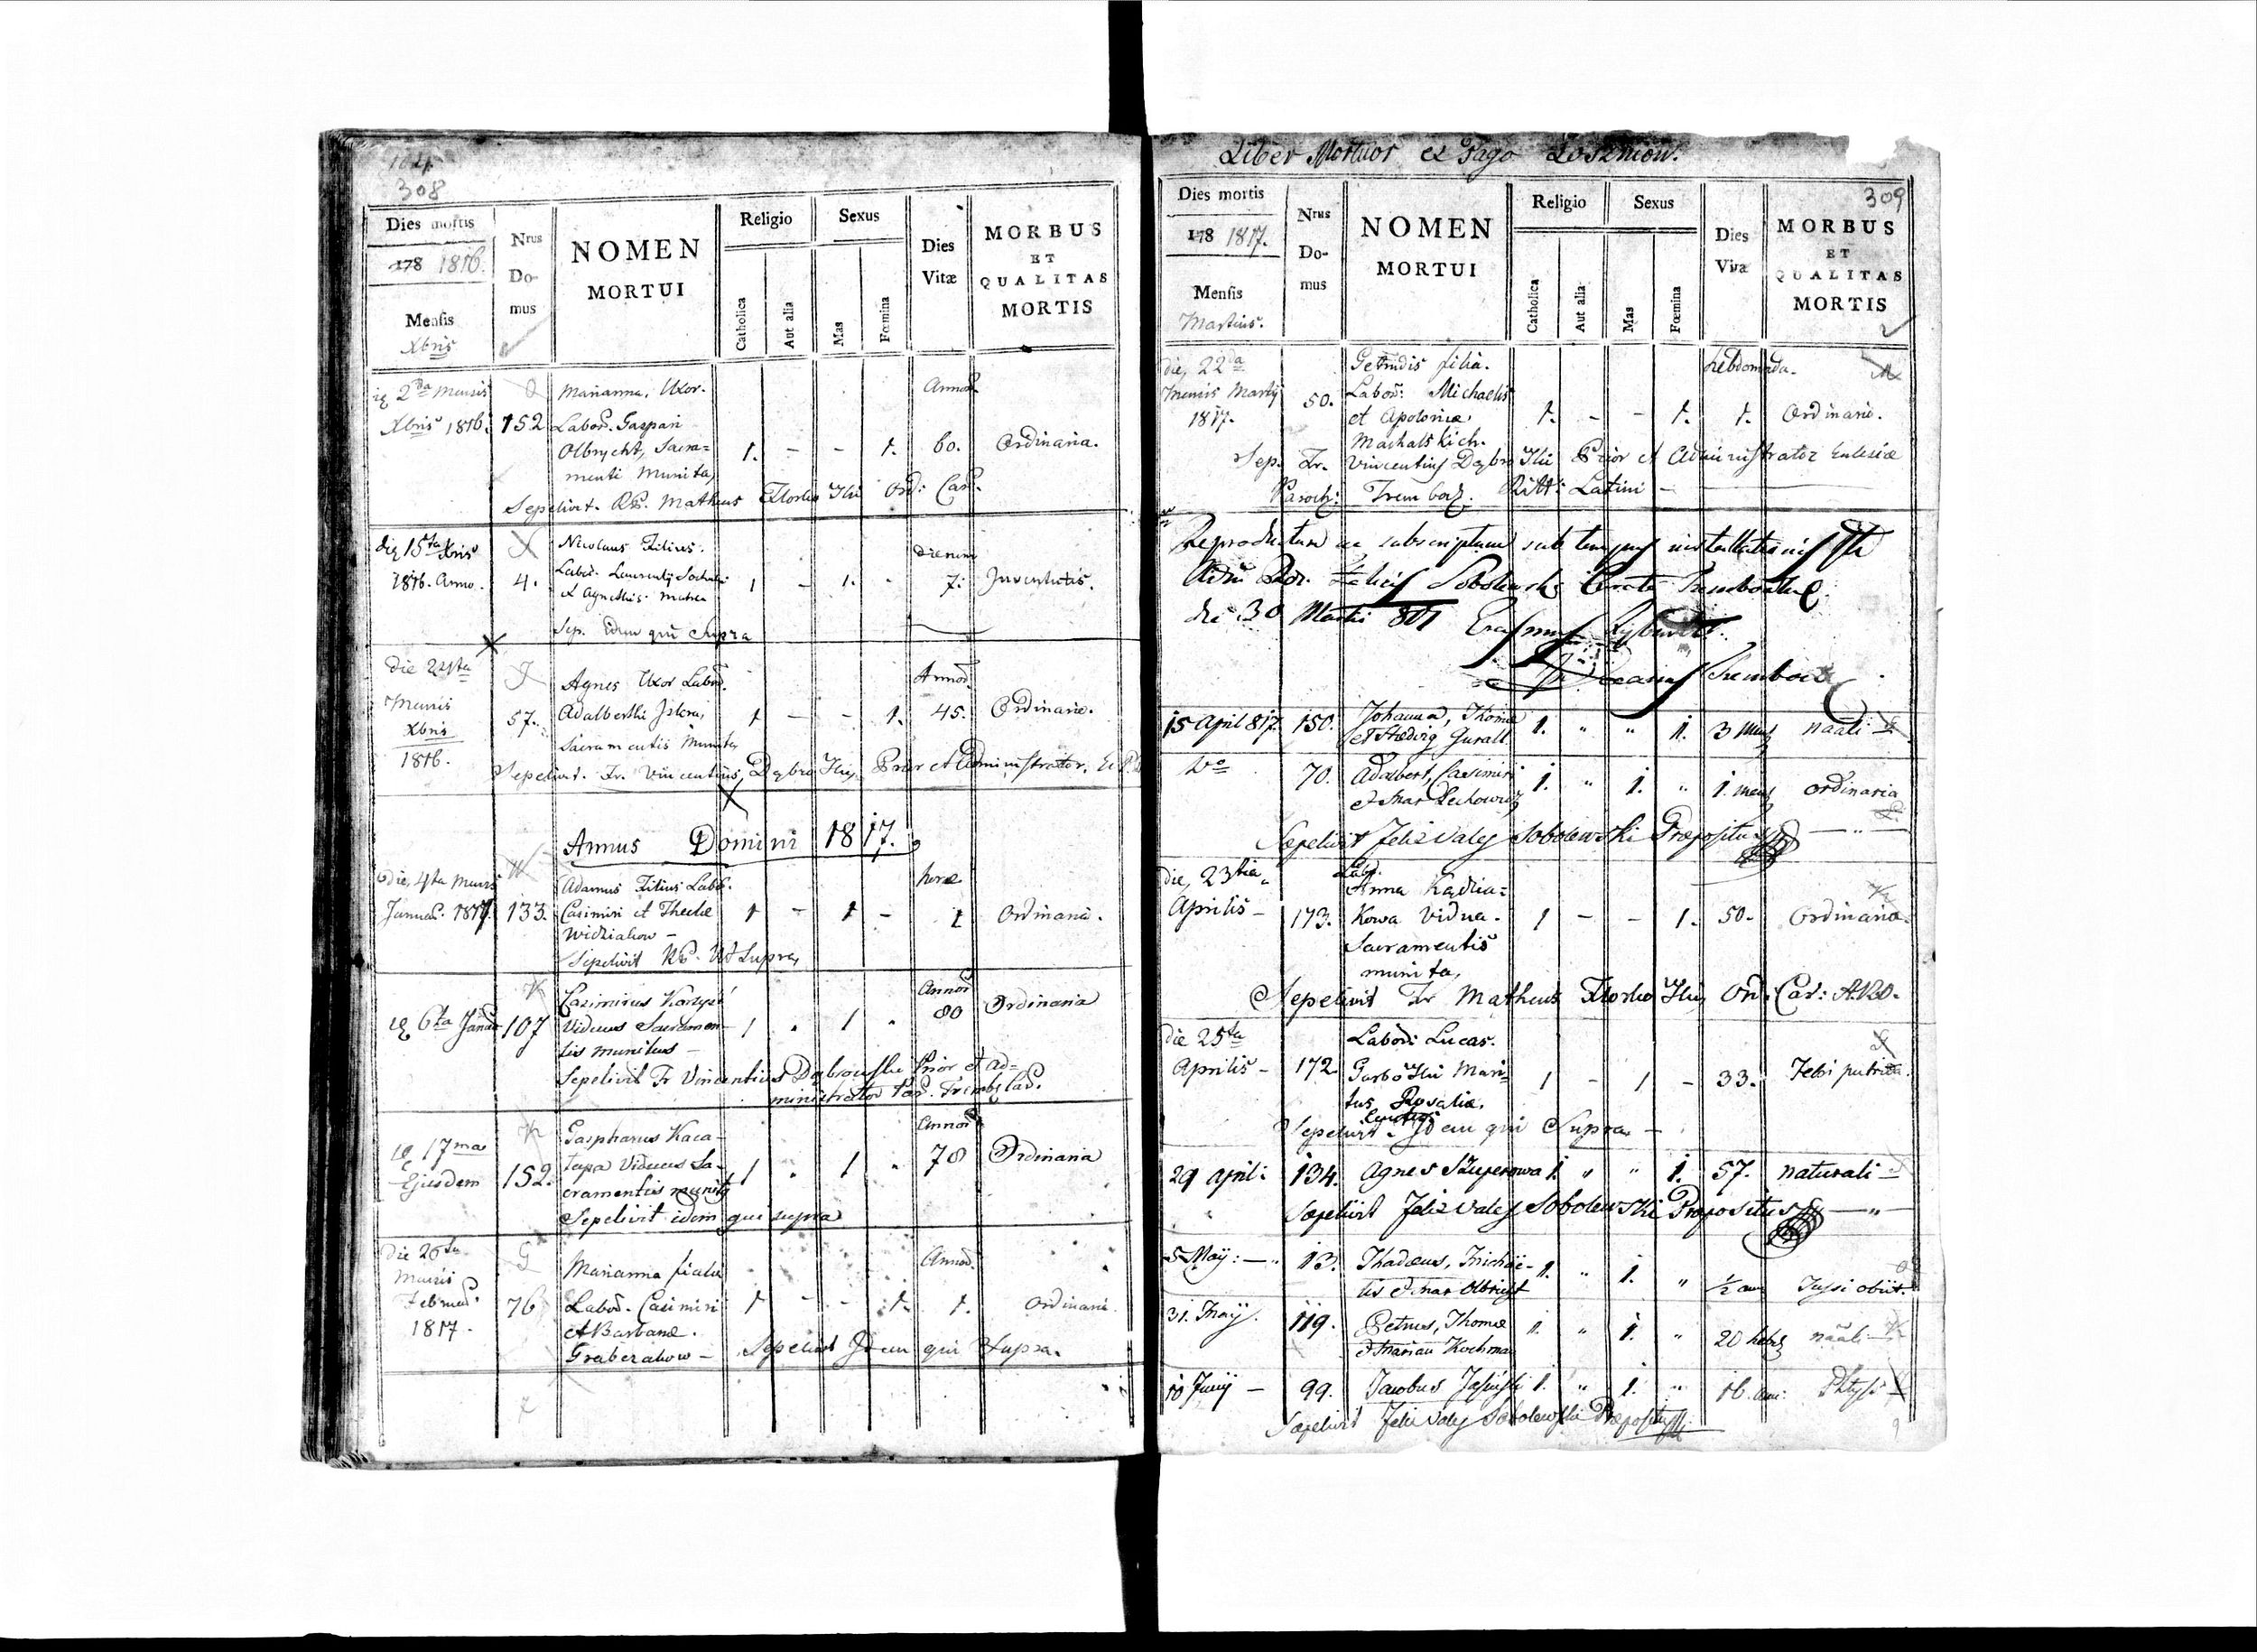 104
308
Dies mortis
178 1816.
Mensis
Xbris
Nrus
Do-
mus
NOMEN
MORTUI
Religio
Catholica
Aut alia
Sexus
Mas
Fœmina
Dies
Vitæ
MORBUS
ET
QUALITAS
MORTIS
2da Mensis
Xbris 1816.
152
Marianna, Uxor.
Labor. Gaspari
Olbrycht, Sacra=
menti Munita,
1. - - 1.
Annor.
60.
Ordinaria.
Sepelivit. Matheus Ord: Car.
die 15ta Xbris
1816. Anno.
4.
Nicolaus Filius.
Labor. Laurentij
et Agnethis.
1 - 1. -
Dierum
7.
Juventutis.
Sep. idem qui Supra
Die 24ta
Mensis
Xbris
1816.
57.
Agnes Uxor Labor.
Adalberthi
Sacramentis Munita,
1 - - 1.
Annor.
45.
Ordinarie.
Sepelivit. Fr. Vincentius, Dąbrowski, Prior et Administrator.
Annus Domini 1817.
Die, 4ta Mensis
Januar. 1817.
133.
Adamus Filius Labor.
Casimiri et Theclæ
Widziakow -
1 - 1 -
horæ
1
Ordinaria.
Sepelivit Ut Supra,
6ta Januar
107
Casimirus
Viduus Sacramen-
tis munitus -
1 1
Annor
80
Ordinaria
Sepelivit Fr Vincentius Dąbrowski Prior et Ad-
ministrator
17ma
Ejusdem
152.
Gaspharus Kaca-
Viduus Sa-
cramentis munitus
1 1
Annor
78
Ordinaria
Sepelivit idem qui supra
Die 26ta
Mensis
Februar.
1817.
76
Marianna filia
Labor. Casimiri
et Barbaræ.
Graberakow -
1 - - 1.
Annor.
1.
Ordinarie.
Sepelivit Idem qui Supra.
Liber Mortuor ex Pago Łoszniow.
309
Dies mortis
178 1817.
Mensis
Martius.
Nrus
Do-
mus
NOMEN
MORTUI
Religio
Catholica
Aut alia
Sexus
Mas
Fœmina
Dies
Vitæ
MORBUS
ET
QUALITAS
MORTIS
die, 22da
Mensis Martij
1817.
50.
Getrudis filia.
Labor: Michaelis
et Apoloniæ
Machalskich.
1. - - 1.
hebdomada.
1.
Ordinarie.
Sep. Fr. Vincentius Dąbrowski Prior et Administrator Eclesiæ
Paroch: Trembow. Ritt: Latini -
Reproductum ac subscriptum sub tempus installationis
Felicis Sobolewski
die 30 Martii 817
15 April 817.
150.
Johanna, Thomæ
et Hedvig Gurall
1. " " 1.
3 Mens
naãli
70.
Adalbert, Casimiri
et Mar Lechowicz
1. " 1. "
1. mens
ordinaria
Sepelivit Felix Valez Sobolewski Præpositus
die, 23tia
Aprilis -
173.
Labor.
Anna Kadłu=
kowa Vidua.
Sacramentis
munita,
1 - - 1.
50.
Ordinaria.
Sepelivit Fr Matheus Ord: Car: A.R.O.
die 25ta
Aprilis -
172
Labor: Lucas.
Garbowski Mari=
tus Rosaliæ.
1 - 1 -
33.
Febri putrida.
Sepelivit. Idem qui Supra. -
29 april:
134.
Agnes Szuperowa
1. " " 1.
57.
naturali -
Sepelivit Felix Valez Sobolewski Præpositus
5 Maij: -
13.
Thadeus, Michae-
lis et Mar Olbricht
1. " 1. "
½ ann
Tussi obiit.
31. Maij.
119.
Petrus, Thomæ
et Marian Kochman
1. " 1. "
20 hebd
naãli
10 Junij -
99.
Jacobus Jasiński
1. " 1. "
16. ann:
Phtysi
Sepelivit Felix Valez Sobolewski Præpositus